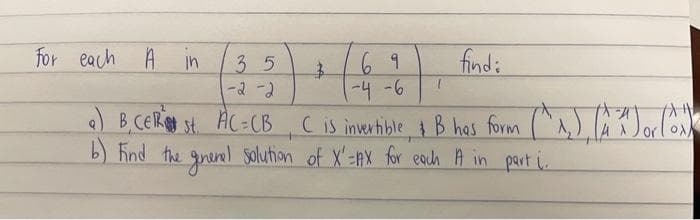 For each A in (3 5 -2 -2) & (6 9 -4 -6), find:
a) B, C∈R² st. AC=CB, C is invertible, & B has form (λ₁ λ₂), (λ -μ μ λ) or (λ 1 0 λ)
b) Find the general solution of X'=AX for each A in part i.